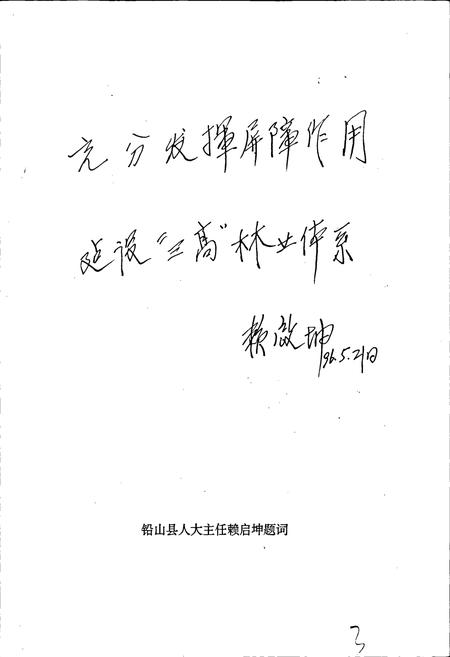 充分发揮屏障作用
建设“三高”林业体系
赖启坤
96.5.21日
铅山县人大主任赖启坤题词
3